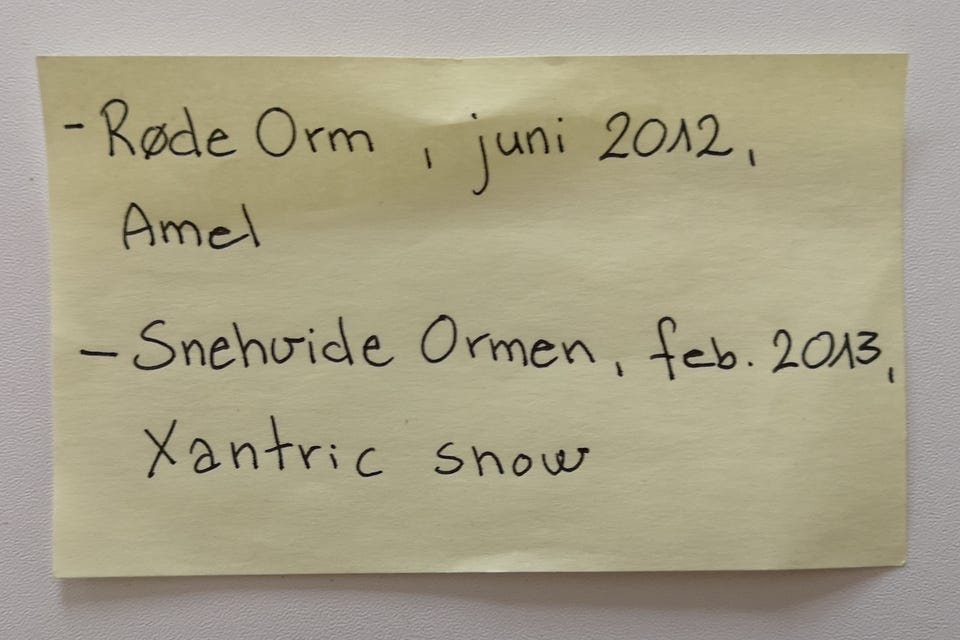 - Røde Orm , juni 2012,
Amel
- Snehvide Ormen, feb. 2013,
Xantric snow